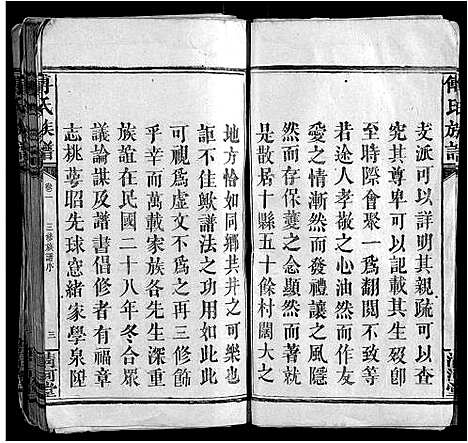 支派可以詳明其親疏可以查
究其尊卑可以存其生歿卽
時際應會聚一爲翻閱不致
若途人孝敬之心油然而生
愛之情漸然而發禮讓之風隱
然而存葆夔之念俱
是散居十縣五十餘村闊大之
地方恰如同鄉共井之可樂也
詎不佳歟譜法之功用如此此
可視爲虛文不爲之再三修飾
而萬載家族各先生深重
族誼在民國二十八年冬合眾
議論謀及譜書倡修者有福章
志桃夢昭先球窓緒家學泉陞
傅氏族譜
卷一
三修族譜序
三
清河堂
傅氏族譜
清河堂